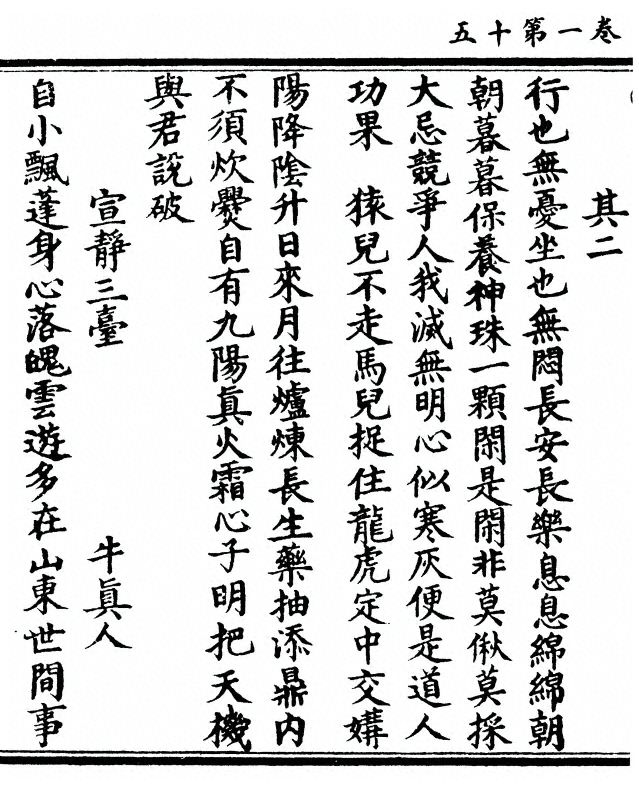 卷一第十五
其二
行也無憂坐也無悶長安長樂息息綿綿朝
朝暮暮保養神珠一顆閑是閑非莫偢莫採
大忌競爭人我滅無明心似寒灰便是道人
功果　猿兒不走馬兒捉住龍虎定中交媾
陽降陰升日來月往爐煉長生藥抽添鼎内
不須炊爨自有九陽真火霜心子明把天機
與君說破
宣靜三臺　牛真人
自小飄蓬身心落魄雲遊多在山東世間事